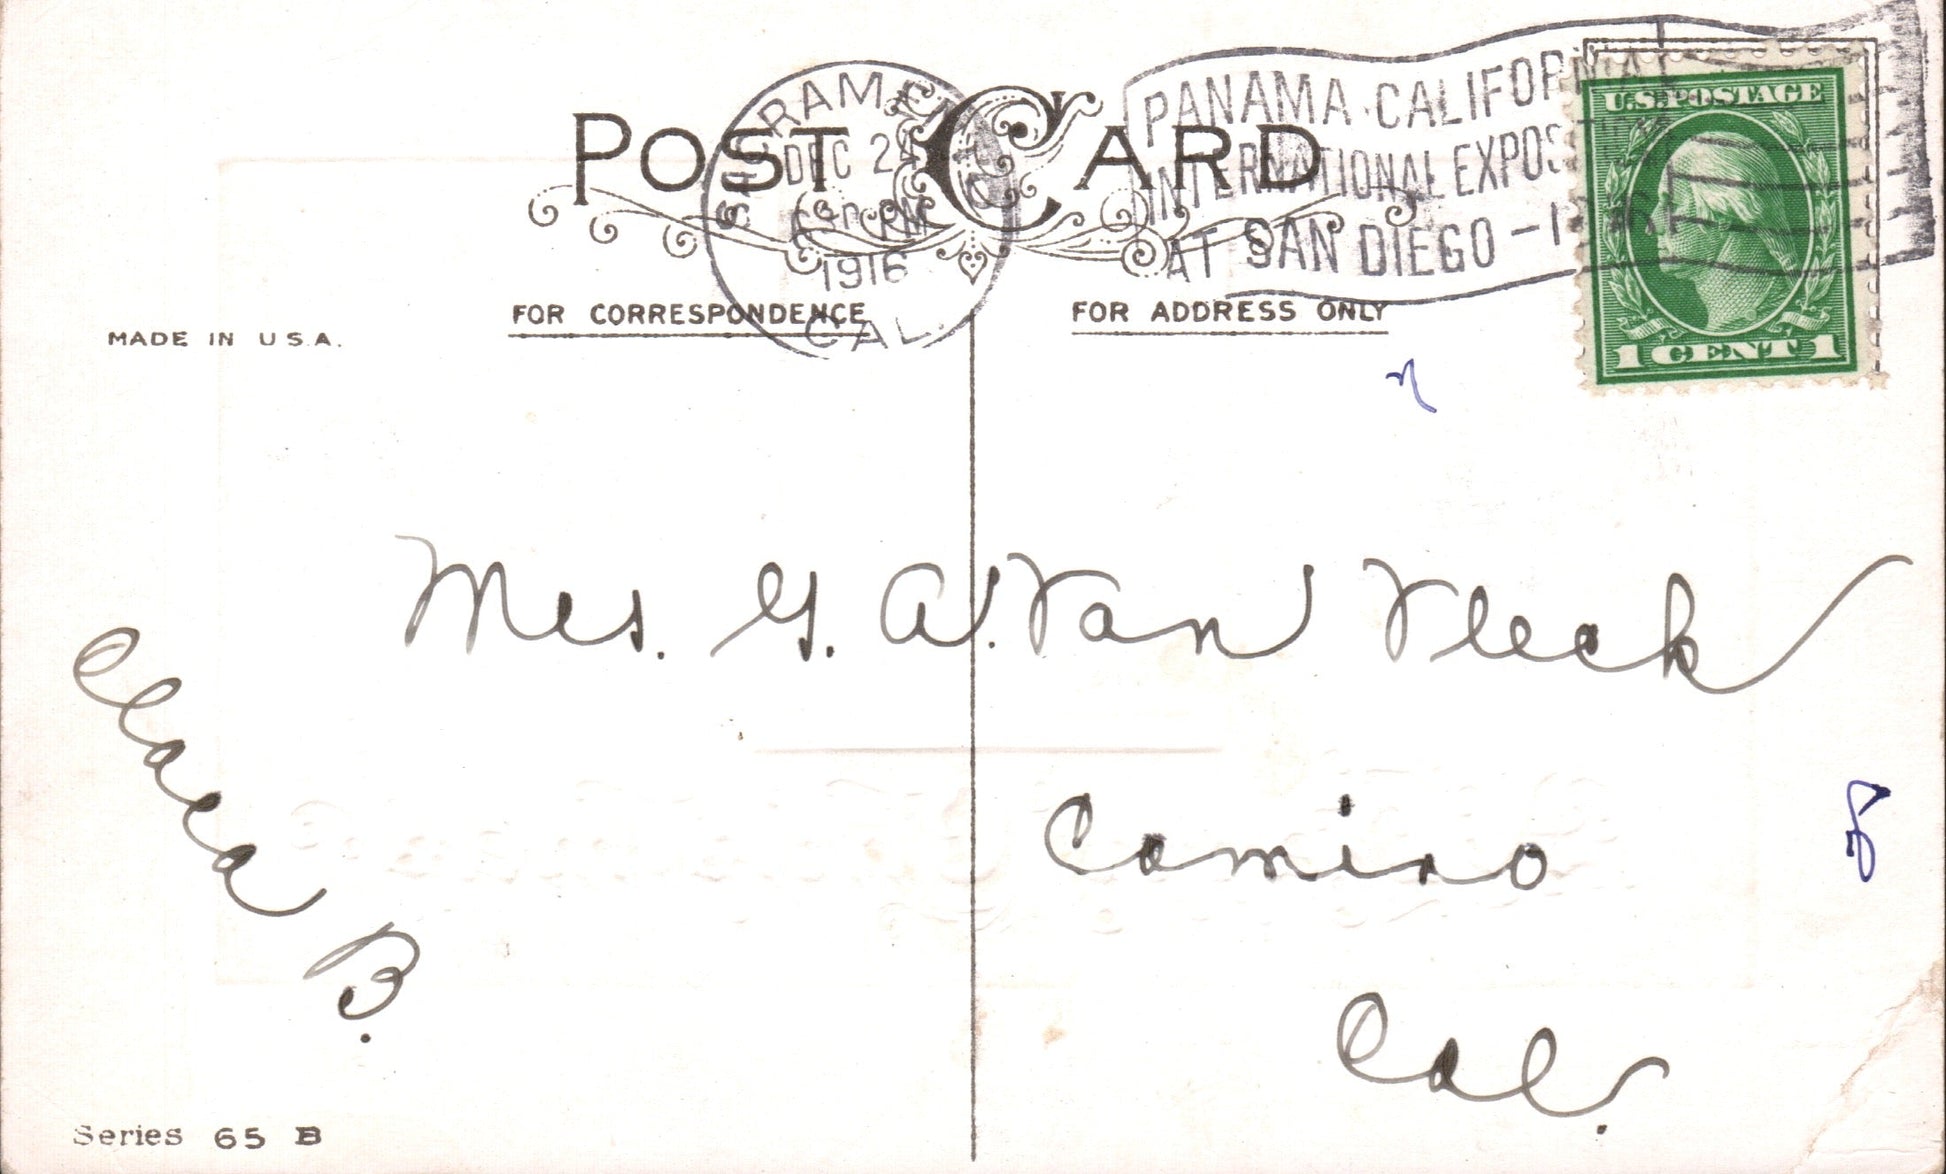 POST CARD
SACRAMENTO
DEC 2
PM
1916
CAL.
PANAMA-CALIFORNIA
INTERNATIONAL EXPOSITION
AT SAN DIEGO - 1916
U.S. POSTAGE
1 CENT 1
FOR CORRESPONDENCE
FOR ADDRESS ONLY
MADE IN U.S.A.
Mrs. G. A. Van Vleck
Camino
Cal.
Clara B.
Series 65 B